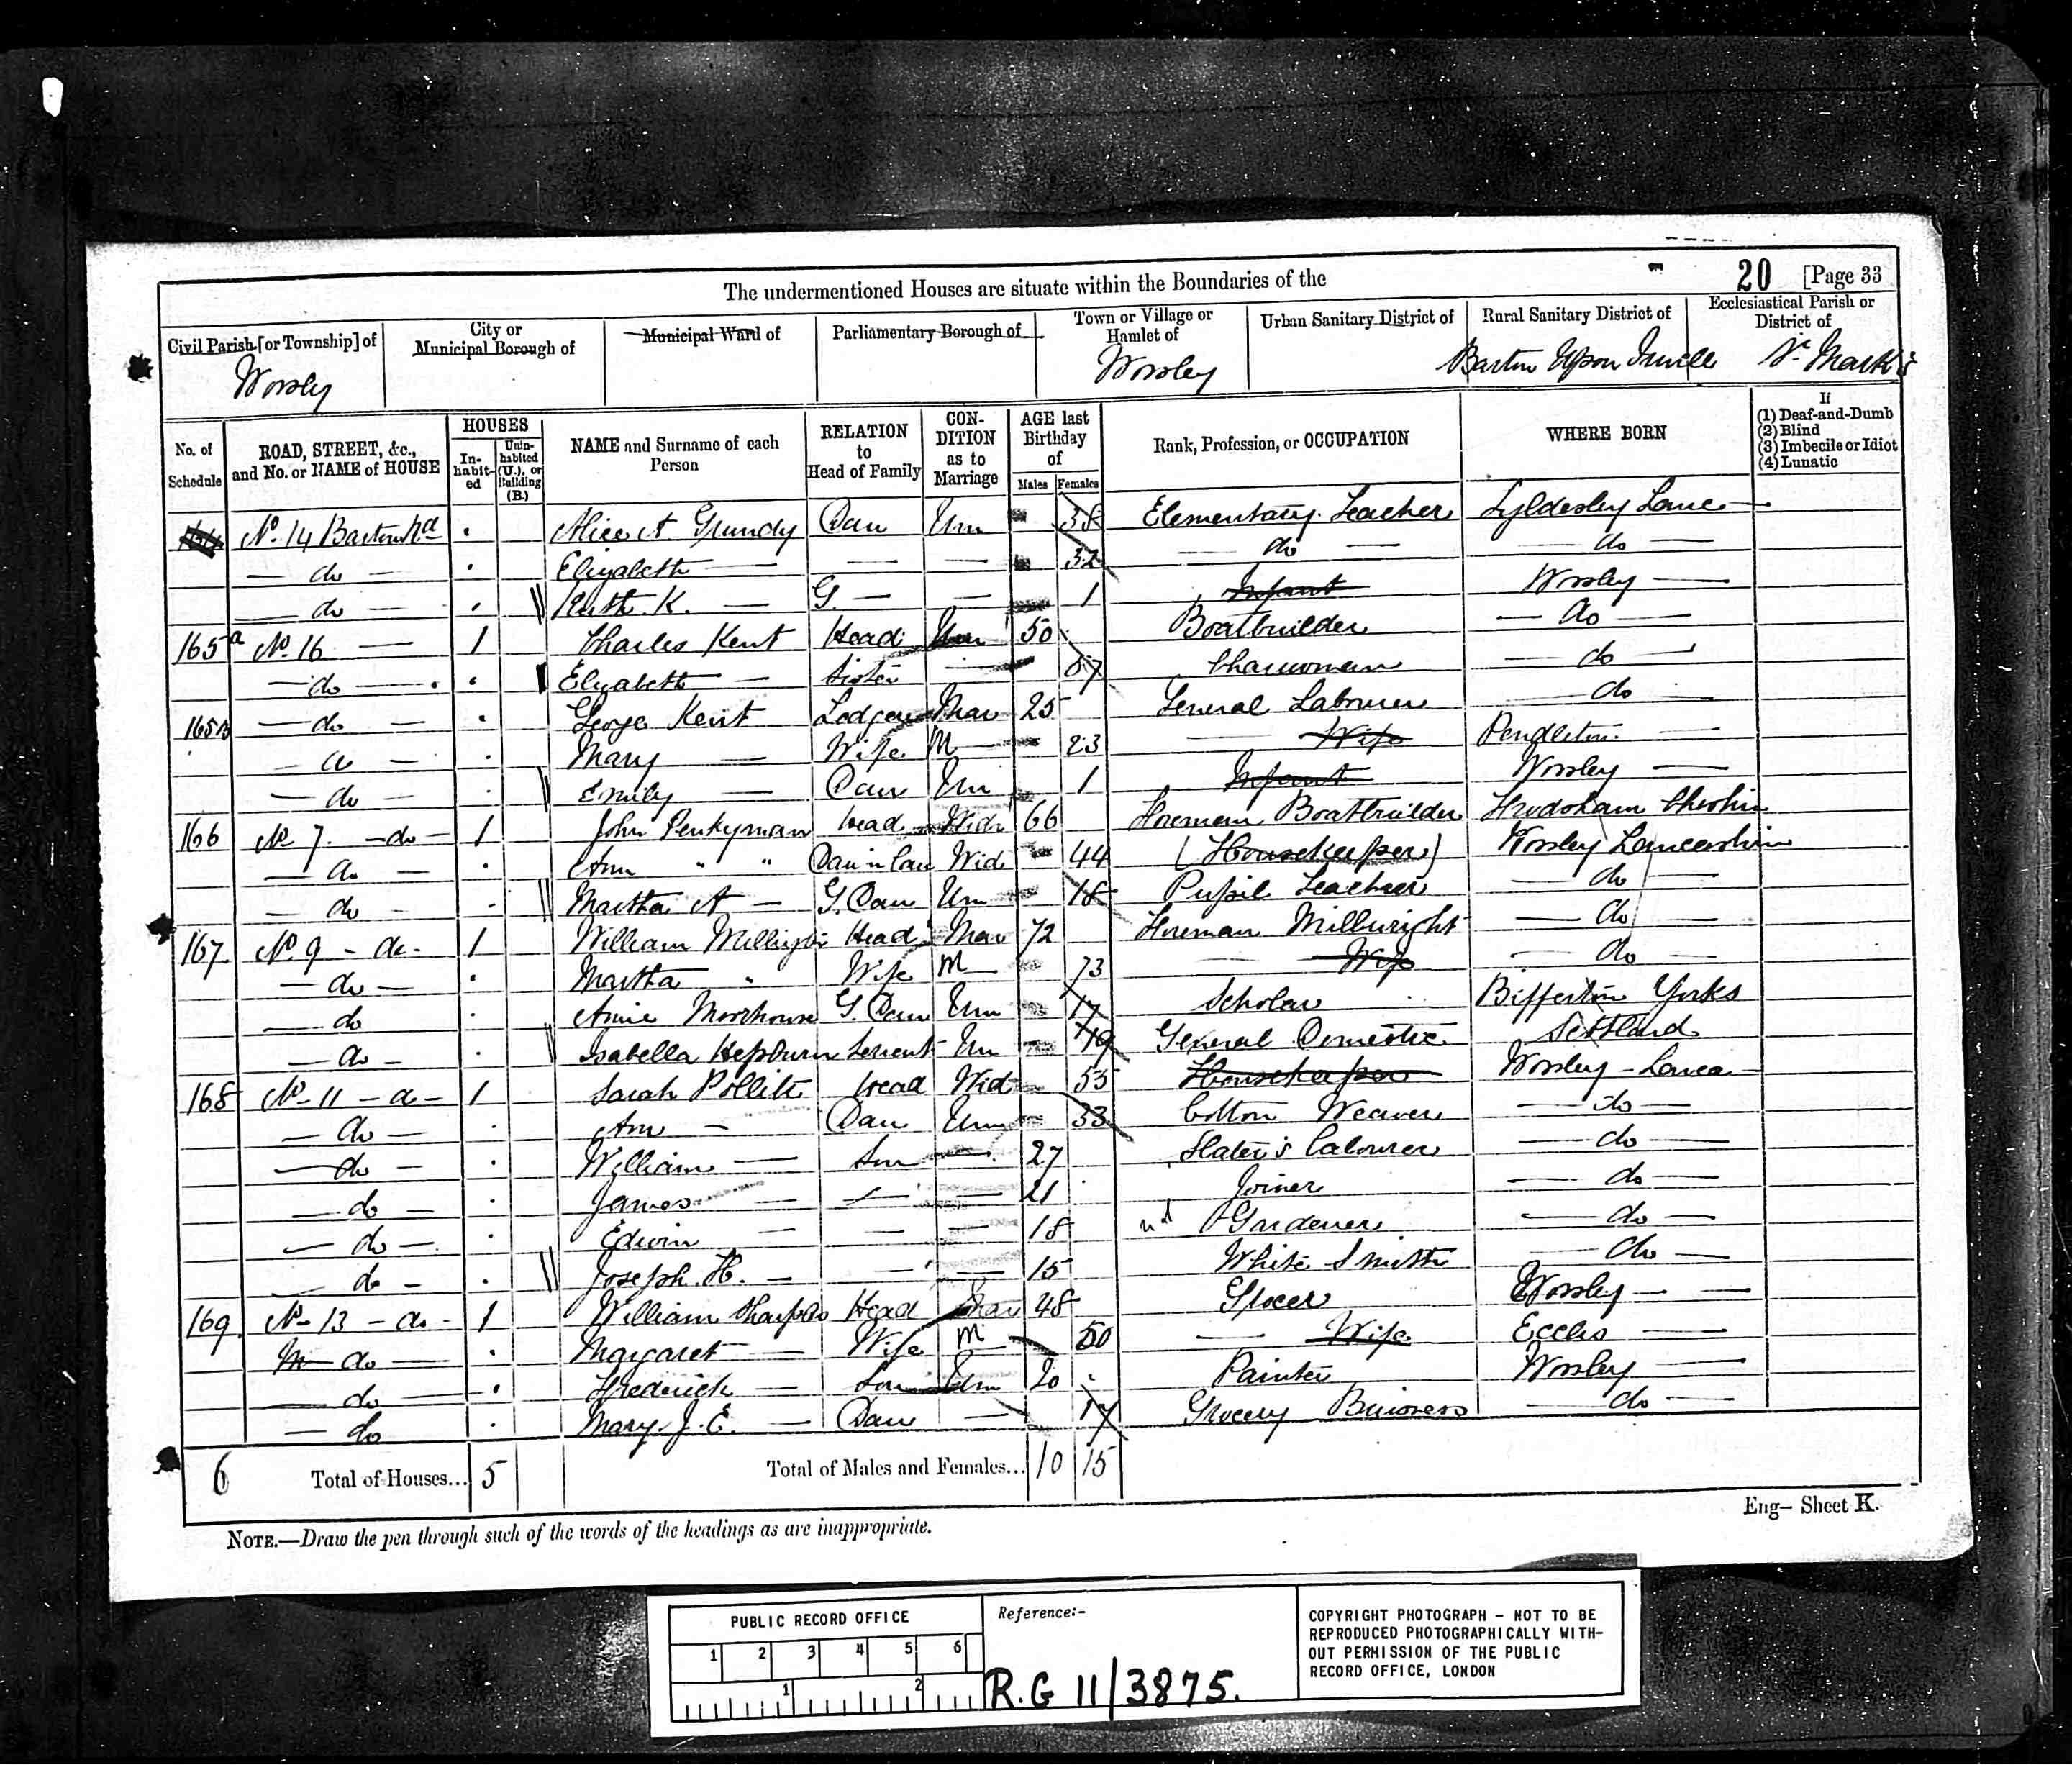 The undermentioned Houses are situate within the Boundaries of the
20 [Page 33
Civil Parish [or Township] of
City or Municipal Borough of
Municipal Ward of
Parliamentary Borough of
Town or Village or Hamlet of
Urban Sanitary District of
Rural Sanitary District of
Ecclesiastical Parish or District of
Worsley
Worsley
Barton Upon Irwell
St Mark's
No. of Schedule
ROAD, STREET, &c., and No. or NAME of HOUSE
HOUSES
In-habit-ed
Unin-habited (U.), or Building (B.)
NAME and Surname of each Person
RELATION to Head of Family
CON-DITION as to Marriage
AGE last Birthday of
Males Females
Rank, Profession, or OCCUPATION
WHERE BORN
If
(1) Deaf-and-Dumb
(2) Blind
(3) Imbecile or Idiot
(4) Lunatic
No. 14 Barton Rd Alice A Grundy Dau Um 38 Elementary Teacher Tyldesley Lanc
do Elizabeth — — — 32 do do
do Ruth K. — G. — — 1 Infant Worsley
165a No. 16 — 1 Charles Kent Head Um 50 Boatbuilder do
do Elizabeth — Sister — 57 Charwoman do
165B do George Kent Lodger Mar 25 General Labourer do
do Mary — Wife M 23 Wife Pendleton
do Emily — Dau Um 1 Infant Worsley
166 No 7. — do — 1 John Penkyman Head Widr 66 Foreman Boatbuilder Frodsham Cheshire
do Ann " " Dau in Law Wid 44 (Housekeeper) Worsley Lancashire
do Martha A — G. Dau Um 18 Pupil Teacher do
167 No 9 — do — 1 William Millington Head Mar 72 Foreman Millwright do
do Martha " Wife M 73 Wife do
do Annie Moorhouse G. Dau Um 17 Scholar Yorks
do Isabella Hepburn Servent Um 19 General Domestic Scotland
168 No 11 — do — 1 Sarah Pollitt Head Wid 55 Housekeeper Worsley - Lanca
do Ann — Dau Um 33 Cotton Weaver do
do William — Son — 27 Slater's Labourer do
do James — — — 21 Joiner do
do Edwin — — — 18 Gardener do
do Joseph H. — — — 15 White Smith do
169 No 13 — do — 1 William Head Mar 48 Grocer Worsley
do Margaret — Wife M 50 Wife Eccles
do Frederick — Son Um 20 Painter Worsley
do Mary J. E. — Dau — 17 Grocery Business do
6 Total of Houses... 5 Total of Males and Females... 10 15
Eng— Sheet K.
NOTE.—Draw the pen through such of the words of the headings as are inappropriate.
PUBLIC RECORD OFFICE
1 2 3 4 5 6
1 2
Reference:-
R.G 11/3875.
COPYRIGHT PHOTOGRAPH - NOT TO BE
REPRODUCED PHOTOGRAPHICALLY WITH-
OUT PERMISSION OF THE PUBLIC
RECORD OFFICE, LONDON